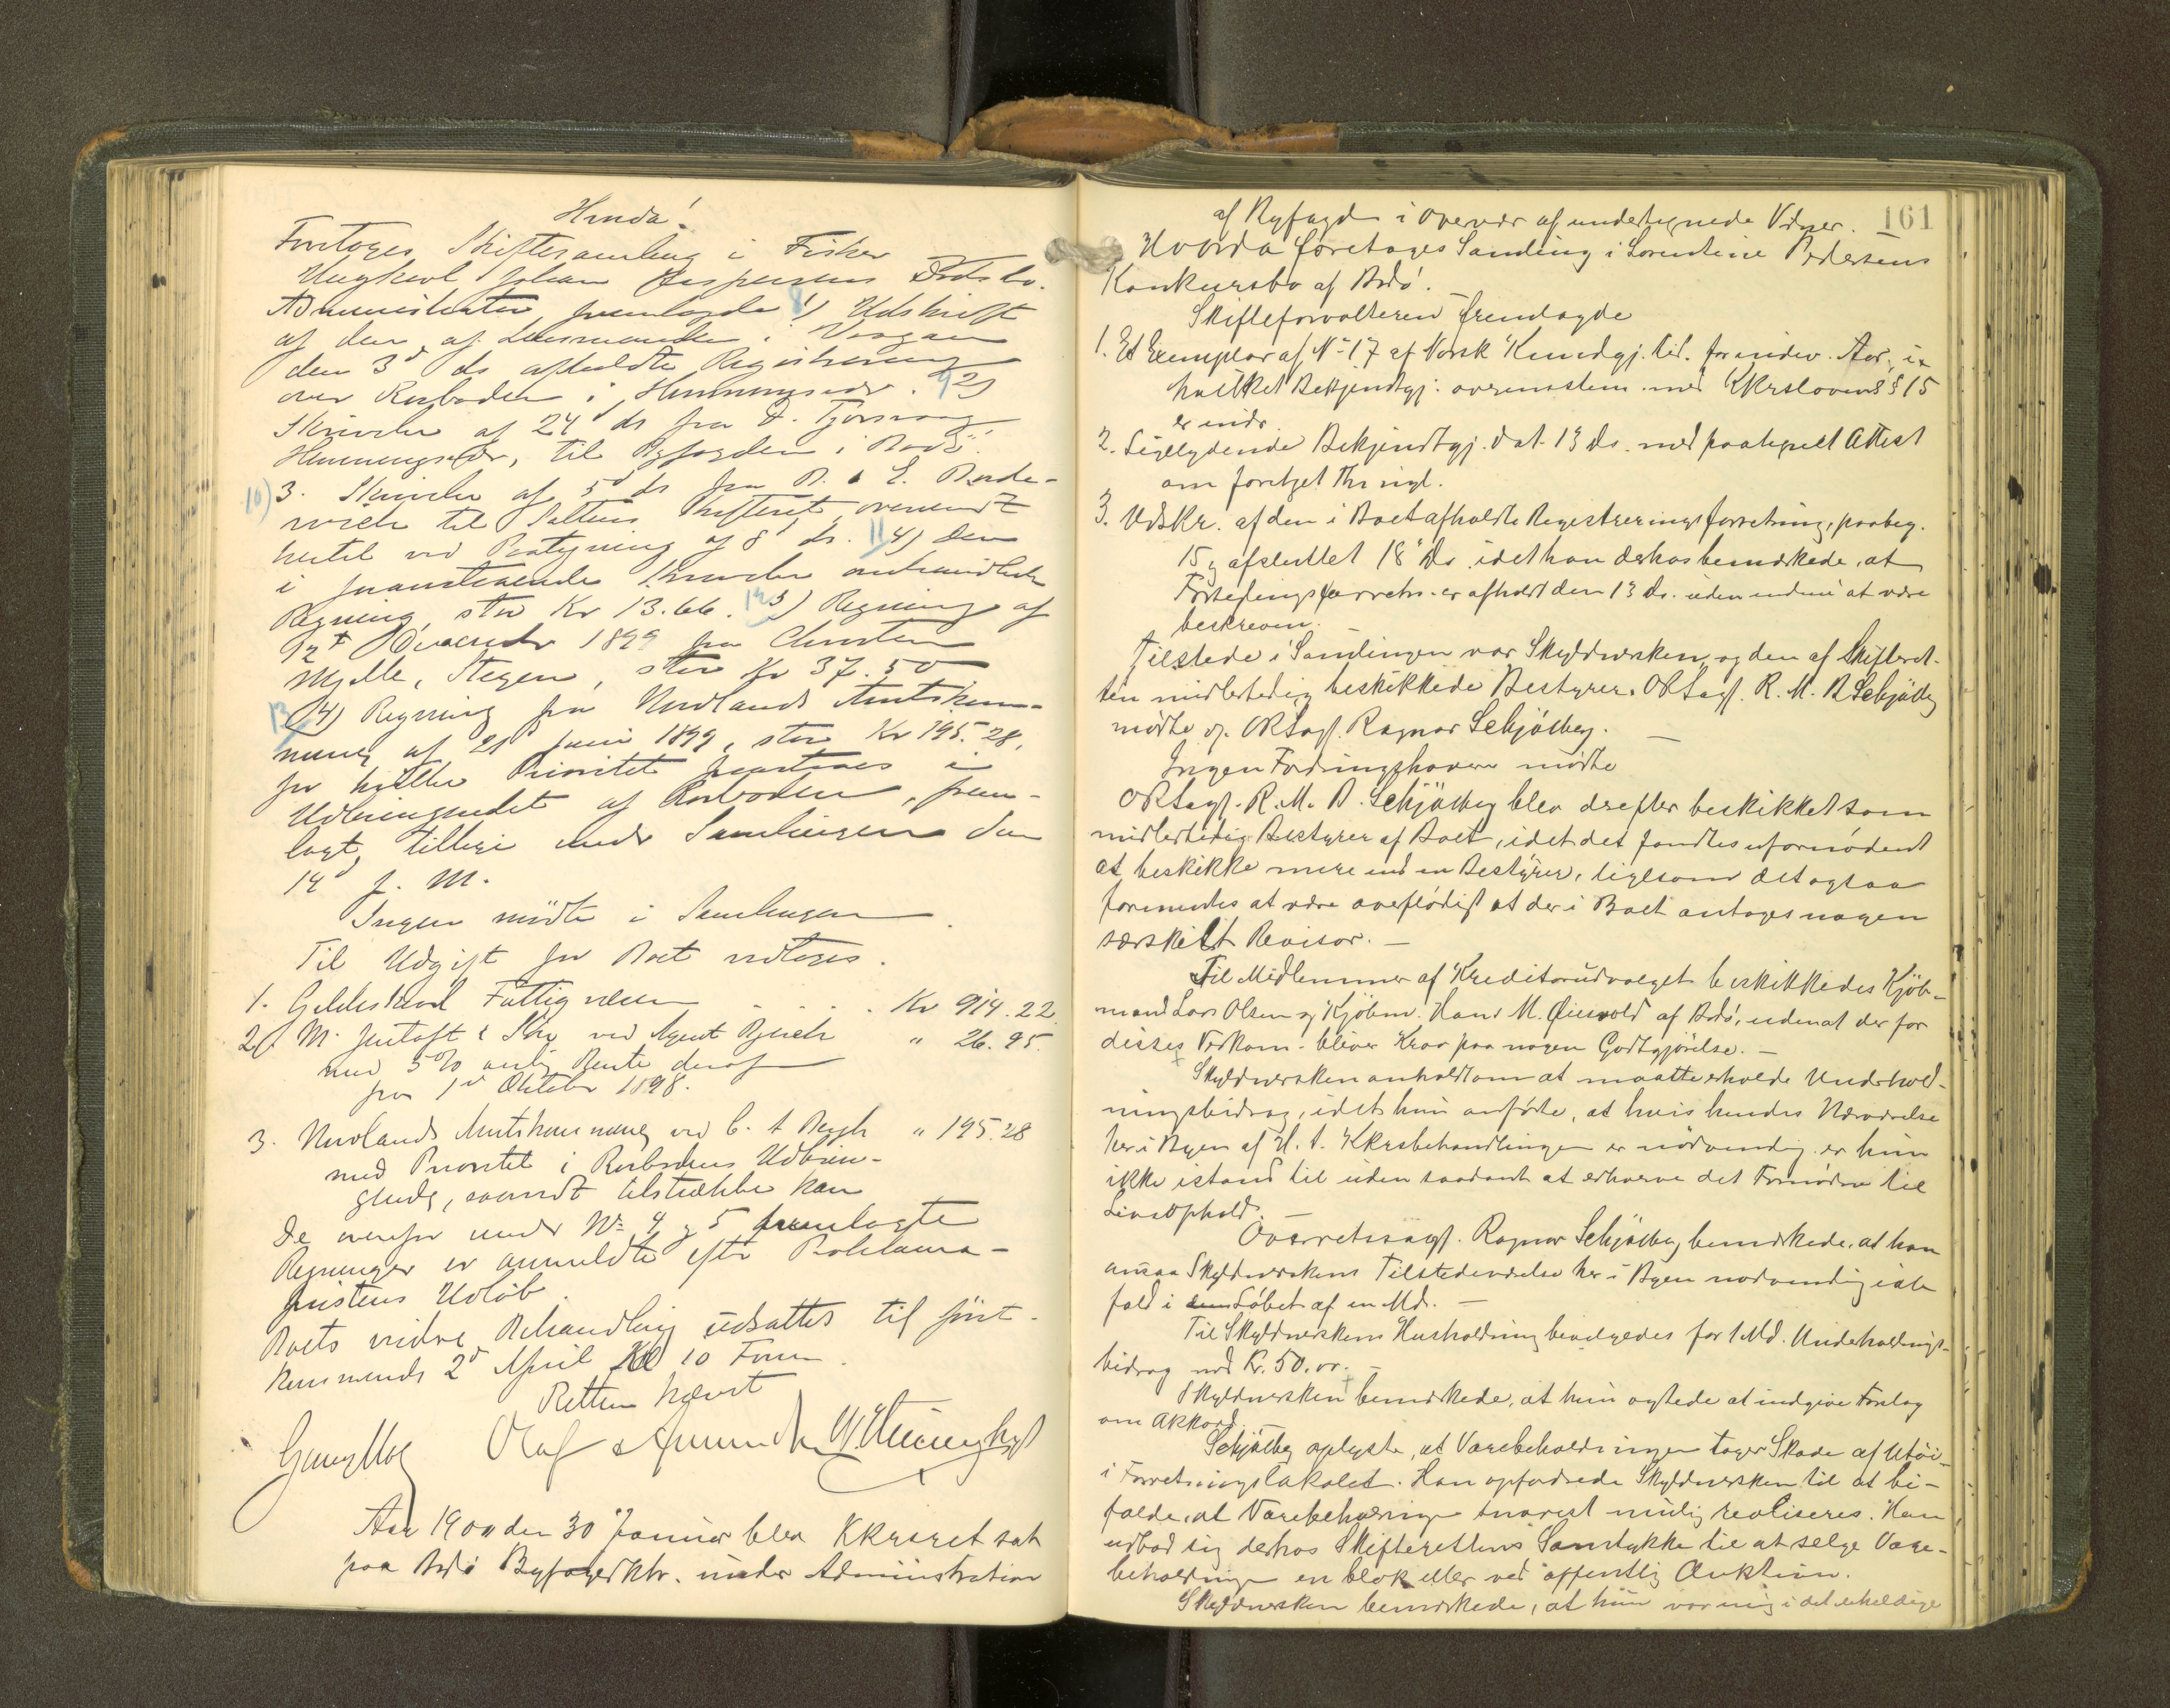 Hvorda!
Foretoges Skiftesamling i Fisker
Ungkarl Johan Jespersens Dødsbo.
Administrator fremlagde 8 1) Udskrift
af den af Lensmanden i Vaagan
den 3d ds afholdte Registrering
over Rorboden i Henningsvær. 9 2)
Skrivelse af 24d ds fra O. Tjønsvaag
Henningsvær, til Byfogden i Bodö.
10) 3. Skrivelse af 5d ds fra B. & E. Borde-
wich til Saltens Skifteret oversendt
hertil ved Paategning af 8d ds. 11 4) den
i foranstaaende Skrivelse ombehandlede
Regning, stor Kr 13.66. 12 3) Regning af
12t December 1899 fra Christen
Mølle, Stegen, stor Kr 37.50
13 4) Regning fra Nordlands Amtskom-
mune af 21d Juni 1899, stor Kr 195.28,
for hvilke Prioritet paastaaes i
Udbringendet af Rorboden, frem-
lagt tillige under Samlingen den
14d f. M.
Ingen mödte i Samlingen.
Til Udgift for Boet vedtoges.
1. Gildeskaal Fattigvæsen . . . . Kr 914.22
2. M. Jentoft & Søn ved Agent Bjerch " 26.95.
med 5% aarlig Rente deraf
fra 1d Oktober 1898.
3. Nordlands Amtskommune ved C. A Bergh " 195.28
med Prioritet i Rorbodens Udbrin-
gende, saavidt tilstrække kan
De ovenfor under No 4 og 5 fremlagte
Regninger er anmeldte efter Proklama-
fristens Udløb.
Boets videre Behandling udsattes til först-
kommende 2d April Kl 10 Form.
Retten hævet
Olaf Amundsen
Aar 1900 den 30 Januar blev KKrsret sat
paa Bodø Byfogedktr. under Administration
161
af Byfogden i Overvær af undertegnede Vidner.
Hvorda foretoges Samling i Lorentine Pedersens
Konkursbo af Bodö.
Skifteforvalteren fremlagde
1. Et Exemplar af No 17 af Norsk Kundgj. tid. for indev. Aar, i
hvilket Bekjendtgj. overensstem. med KKrslovens § 15
er indr.
2. Ligelydende Bekjendtgj. dat. 13 ds. med paategnet Attest
om foretget Thingl.
3. Udskr. af den i Boet afholdte Registreringsforretning, paabeg.
15 og afsluttet 18 ds. idet han derhos bemærkede, at
Forseglingsforretn. er afholdt den 13 ds. uden endnu at være
beskreven.
Tilstede i Samlingen var Skyldnersken, og den af Skifteret-
ten midlertidig beskikkede Bestyrer. ORSagf. R. M. B. Schjölberg
mödte og ORSagf. Ragnar Schjölberg. —
Ingen Fordringshavere mödte
ORSagf. R. M. B. Schjölberg blev derefter beskikket som
midlertidig Bestyrer af Boet, idet det fandtes ufornödent
at beskikke mere end en Bestyrer, ligesom det ogsaa
formentes at være overflödigt at der i Boet antoges nogen
særskilt Revisor. —
Til Medlemmer af Kreditorudvalget beskikkedes Kjöb-
mand Lars Olsen og Kjöbm. Hans M. Öiesvold af Bodö, uden at der for
disses Vedkom. bliver Krav paa nogen Godtgjörelse. —
Skyldnersken anholdt om at maatte erholde Underhold-
ningsbidrag, idet hun anförte, at hvis hendes Nærværelse
her i Byen af H. t. KKrsbehandlingen er nödvendig er hun
ikke istand til uden saadant at erhverve det Fornödne til
Livsophold. —
Overretssagf. Ragnar Schjölberg bemærkede, at han
ansaa Skyldnerskens Tilstedeværelse her i Byen nodvendig i alt
fald i Löbet af en Md. —
Til Skyldnerskens Husholdning bevilgedes for 1 Md. Underholdnings-
bidrag med Kr. 50.00. —
Skyldnersken bemærkede, at hun agtede at indgive Forslag
om Akkord.
Schjölberg oplyste, at Varebeholdningen tager Skade af Utöi
i Forretningslokalet. Han opfordrede Skyldnersken til at bi-
falde, at Varebeholdningen snarest mulig realiseres. Han
udbad sig derhos Skifterettens Samtykke til at selge Vare-
beholdningen en blok eller ved offentlig Auktion.
Skyldnersken bemærkede, at hun var enig i det